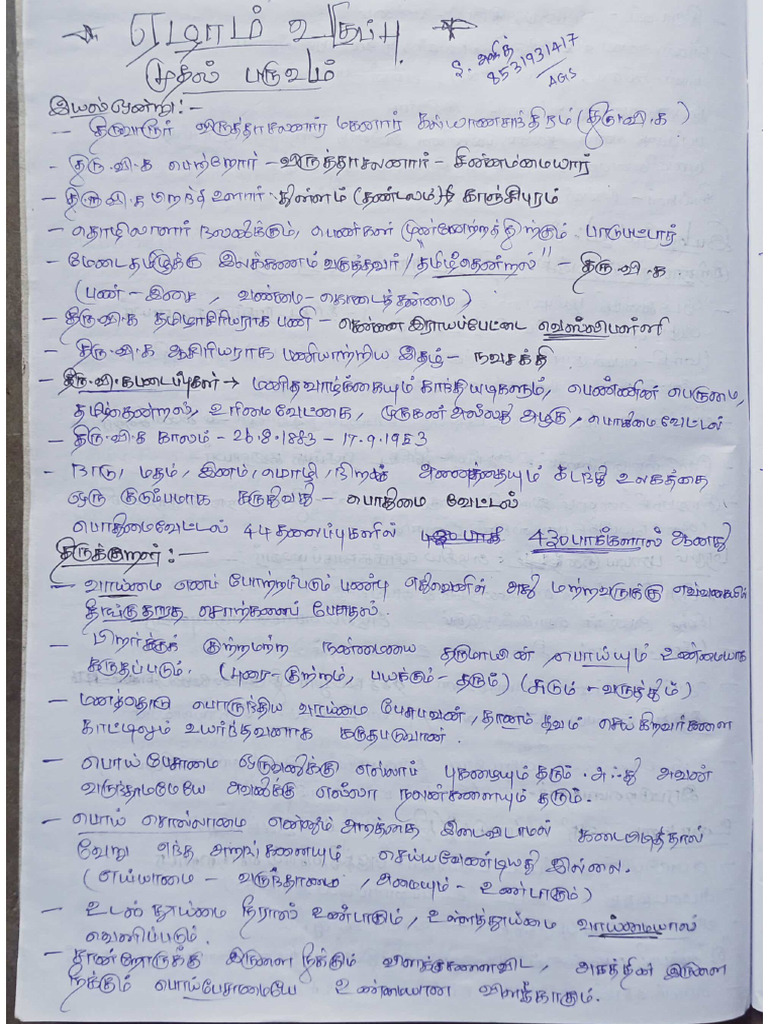 ஏழாம் வகுப்பு
முதல் பருவம்
S. அஜித்
8531931417
AGS
இயல் ஒன்று :-
- திருவாரூர் விருத்தாசலனார் மகனார் கல்யாணசுந்திரம் (திரு.வி.க)
- திரு.வி.க பெற்றோர் - விருத்தாசலனார் - சின்னம்மையார்
- திரு.வி.க பிறந்த ஊர் துள்ளம் (தண்டலம்) காஞ்சிபுரம்
- தொழிலாளர் நலனிக்கும், பெண்கள் முன்னேற்றத்திற்கும் பாடுபட்டார்
- மேடைதமிழுக்கு இலக்கணம் வகுத்தவர் / தமிழ்தென்றல்" - திரு.வி.க
(பண் - இசை , வண்மை - கொடைத்தன்மை)
- திரு.வி.க தமிழாசிரியராக பணி - சென்னை இராயப்பேட்டை வெஸ்லிபள்ளி
- திரு.வி.க ஆசிரியராக பணியாற்றிய இதழ் - நவசக்தி
- திரு.வி.க படைப்புகள் → மனிதவாழ்க்கையும் காந்தியடிகளும், பெண்ணின் பெருமை,
தமிழ்தென்றல், உரிமைவேட்கை, முருகன் அல்லது அழகு, பொதுமைவேட்டல்
- திரு.வி.க காலம் - 26.8.1883 - 17.9.1953
- நாடு, மதம், இனம், மொழி, நிறம் அனைத்தையும் கடந்து உலகத்தை
ஒரு குடும்பமாக கருதுவது - பொதுமை வேட்டல்
பொதுமைவேட்டல் 44 தலைப்புகளில் 430 பாக்களால் ஆனது
திருக்குறள் :-
- வாய்மை எனப் போற்றப்படும் பண்பு எதுவெனில் அது மற்றவருக்கு எவ்வகையில்
தீங்குதராத சொற்களைப் பேசுதல்.
- பிறர்க்குக் குற்றமற்ற நன்மையை தருமாயின் பொய்யும் உண்மையாக
கருதப்படும். (புரை - குற்றம், பயக்கும் - தரும்) (சுடும் - வருத்தும்)
- மனத்தொடு பொருந்திய வாய்மை பேசுபவன், தானம் தவம் செய்கிறவர்களை
காட்டிலும் உயர்ந்தவனாக கருதபடுவான்.
- பொய்பேசாமை ஒருவனிக்கு எல்லாப் புகழையும் தரும். அஃது அவன்
வருந்தாமலேயே அவனிக்கு எல்லா நலன்களையும் தரும்.
- பொய் சொல்லாமை என்னும் அறத்தை இடைவிடாமல் கடைபிடித்தால்
வேறு எந்த அறங்களையும் செய்யவேண்டியது இல்லை.
(எய்யாமை - வருந்தாமை , அமையும் - உண்டாகும்)
- உடல் தூய்மை நீரால் உண்டாகும், உள்ளத்தூய்மை வாய்மையால்
வெளிப்படும்.
- சான்றோருக்கு இருளை நீக்கும் விளக்குகளைவிட, அகத்தின் இருளை
நீக்கும் பொய்பேசாமையே உண்மையான விளக்காகும்.